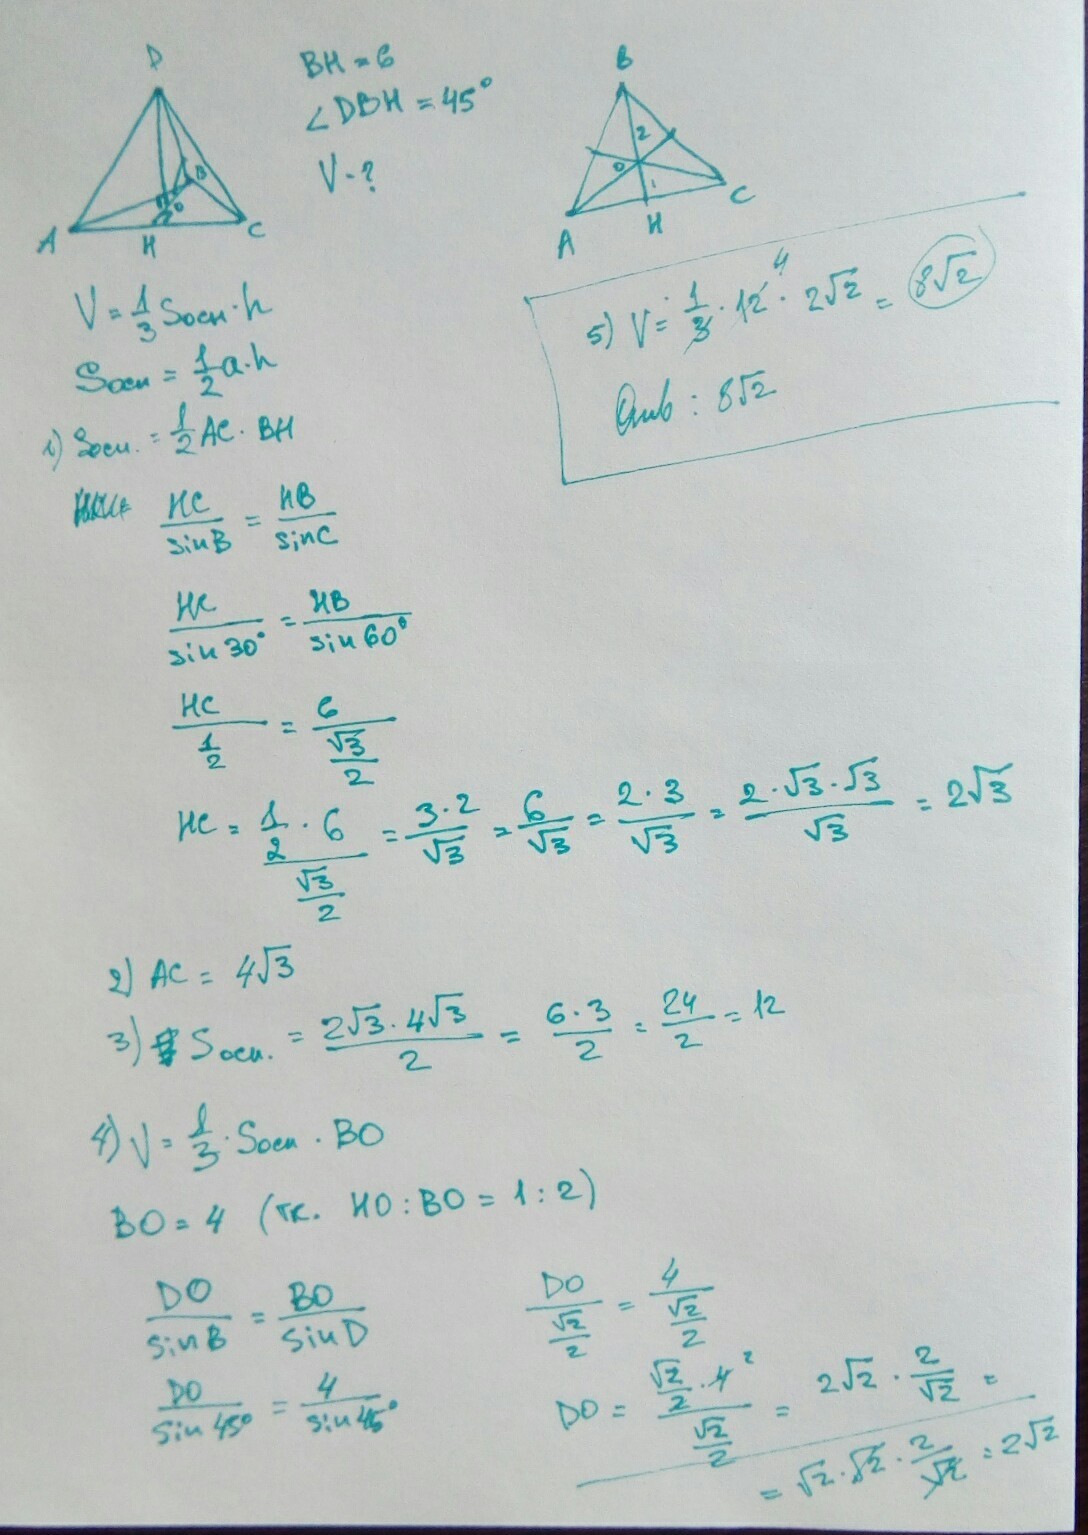 D
A
B
C
H
O
BH = 6
∠DBH = 45°
V - ?
B
2
O
1
A
H
C
V = 1/3 Sосн · h
Sосн = 1/2 a · h
1) Sосн. = 1/2 AC · BH
HC/sinB = HB/sinC
HC/sin30° = HB/sin60°
HC/(1/2) = 6/(√3/2)
HC = (1/2 · 6)/(√3/2) = 3·2/√3 = 6/√3 = 2·3/√3 = 2·√3·√3/√3 = 2√3
2) AC = 4√3
3) Sосн. = 2√3 · 4√3/2 = 6·3/2 = 24/2 = 12
4) V = 1/3 · Sосн · BO
BO = 4 (т.к. HO : BO = 1 : 2)
DO/sinB = BO/sinD
DO/sin45° = 4/sin45°
DO/(√2/2) = 4/(√2/2)
DO = (√2/2 · 4 2)/(√2/2) = 2√2 · 2/√2 =
= √2 · √2 · 2/√2 = 2√2
5) V = 1/3 · 12 4 · 2√2 = 8√2
Отв : 8√2